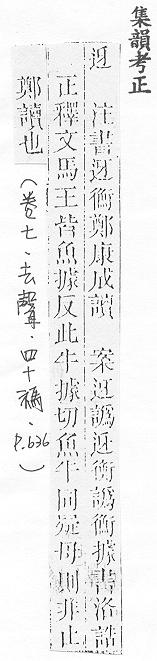 集韻考正
迓　注書迓衡鄭康成讀　案迋譌迓衡譌衡據書洛誥
正釋文馬王皆魚據反此牛據切魚牛同疑母則非止
鄭讀也
(卷七、去聲、四十禡、P.636)